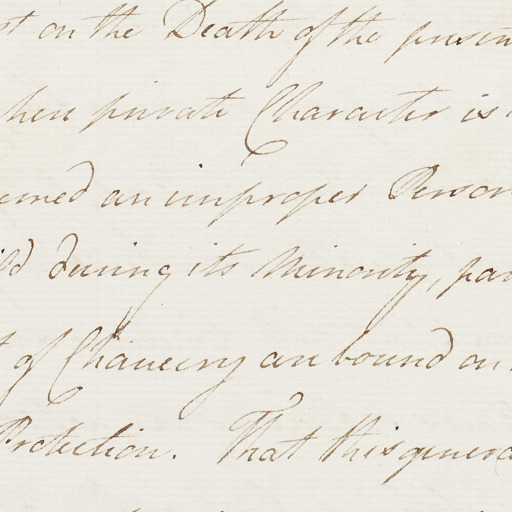 st on the Death of the presen
hen private Character is
emed an improper Person
ild during its Minority, par
t of Chancery are bound on
Protection. That this genera